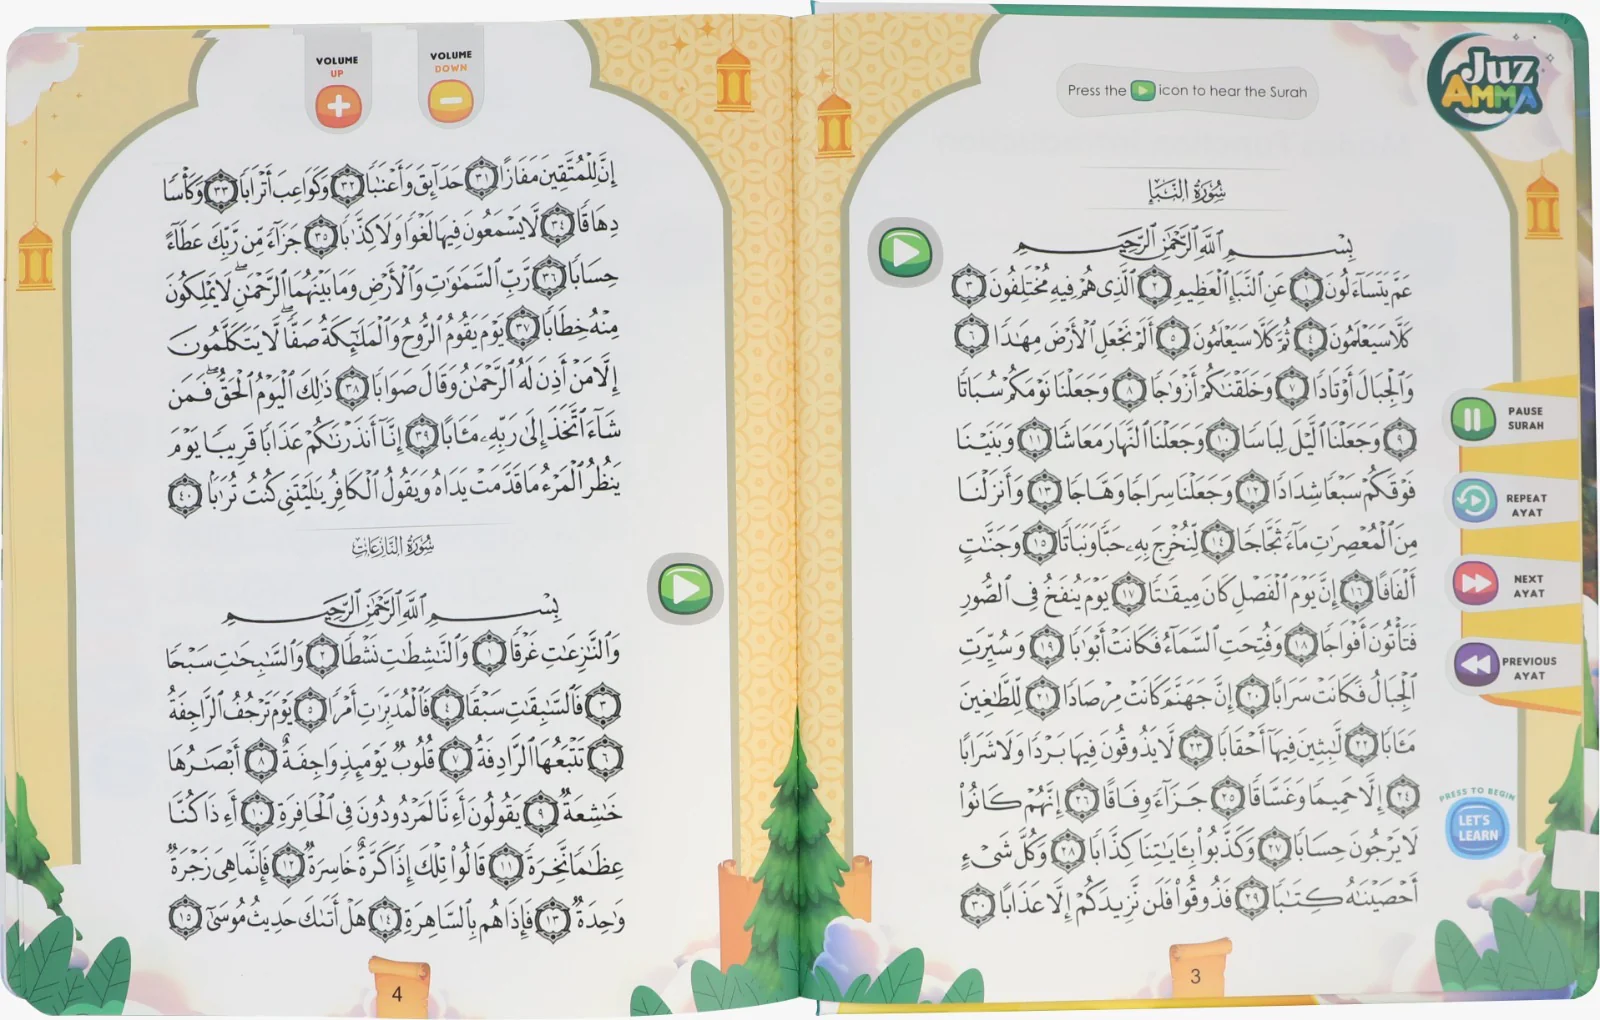 Juz
AMMA
Press the icon to hear the Surah
سُورَةُ النَّبَإِ
بِسْمِ اللَّهِ الرَّحْمَٰنِ الرَّحِيمِ
عَمَّ يَتَسَآءَلُونَ ١ عَنِ ٱلنَّبَإِ ٱلْعَظِيمِ ٢ ٱلَّذِى هُمْ فِيهِ مُخْتَلِفُونَ ٣
كَلَّا سَيَعْلَمُونَ ٤ ثُمَّ كَلَّا سَيَعْلَمُونَ ٥ أَلَمْ نَجْعَلِ ٱلْأَرْضَ مِهَٰدًا ٦
وَٱلْجِبَالَ أَوْتَادًا ٧ وَخَلَقْنَٰكُمْ أَزْوَٰجًا ٨ وَجَعَلْنَا نَوْمَكُمْ سُبَاتًا
٩ وَجَعَلْنَا ٱلَّيْلَ لِبَاسًا ١٠ وَجَعَلْنَا ٱلنَّهَارَ مَعَاشًا ١١ وَبَنَيْنَا
فَوْقَكُمْ سَبْعًا شِدَادًا ١٢ وَجَعَلْنَا سِرَاجًا وَهَّاجًا ١٣ وَأَنزَلْنَا
مِنَ ٱلْمُعْصِرَٰتِ مَآءً ثَجَّاجًا ١٤ لِّنُخْرِجَ بِهِۦ حَبًّا وَنَبَاتًا ١٥ وَجَنَّٰتٍ
أَلْفَافًا ١٦ إِنَّ يَوْمَ ٱلْفَصْلِ كَانَ مِيقَٰتًا ١٧ يَوْمَ يُنفَخُ فِى ٱلصُّورِ
فَتَأْتُونَ أَفْوَاجًا ١٨ وَفُتِحَتِ ٱلسَّمَآءُ فَكَانَتْ أَبْوَٰبًا ١٩ وَسُيِّرَتِ
ٱلْجِبَالُ فَكَانَتْ سَرَابًا ٢٠ إِنَّ جَهَنَّمَ كَانَتْ مِرْصَادًا ٢١ لِّلطَّٰغِينَ
مَـَٔابًا ٢٢ لَّٰبِثِينَ فِيهَآ أَحْقَابًا ٢٣ لَّا يَذُوقُونَ فِيهَا بَرْدًا وَلَا شَرَابًا
٢٤ إِلَّا حَمِيمًا وَغَسَّاقًا ٢٥ جَزَآءً وِفَاقًا ٢٦ إِنَّهُمْ كَانُوا۟
لَا يَرْجُونَ حِسَابًا ٢٧ وَكَذَّبُوا۟ بِـَٔايَٰتِنَا كِذَّابًا ٢٨ وَكُلَّ شَىْءٍ
أَحْصَيْنَٰهُ كِتَٰبًا ٢٩ فَذُوقُوا۟ فَلَن نَّزِيدَكُمْ إِلَّا عَذَابًا ٣٠
PAUSE
SURAH
REPEAT
AYAT
NEXT
AYAT
PREVIOUS
AYAT
PRESS TO BEGIN
LET'S
LEARN
3
VOLUME
UP
VOLUME
DOWN
إِنَّ لِلْمُتَّقِينَ مَفَازًا ٣١ حَدَآئِقَ وَأَعْنَٰبًا ٣٢ وَكَوَاعِبَ أَتْرَابًا ٣٣ وَكَأْسًا
دِهَاقًا ٣٤ لَّا يَسْمَعُونَ فِيهَا لَغْوًا وَلَا كِذَّٰبًا ٣٥ جَزَآءً مِّن رَّبِّكَ عَطَآءً
حِسَابًا ٣٦ رَّبِّ ٱلسَّمَٰوَٰتِ وَٱلْأَرْضِ وَمَا بَيْنَهُمَا ٱلرَّحْمَٰنِ ۖ لَا يَمْلِكُونَ
مِنْهُ خِطَابًا ٣٧ يَوْمَ يَقُومُ ٱلرُّوحُ وَٱلْمَلَٰٓئِكَةُ صَفًّا ۖ لَّا يَتَكَلَّمُونَ
إِلَّا مَنْ أَذِنَ لَهُ ٱلرَّحْمَٰنُ وَقَالَ صَوَابًا ٣٨ ذَٰلِكَ ٱلْيَوْمُ ٱلْحَقُّ ۖ فَمَن
شَآءَ ٱتَّخَذَ إِلَىٰ رَبِّهِۦ مَـَٔابًا ٣٩ إِنَّآ أَنذَرْنَٰكُمْ عَذَابًا قَرِيبًا يَوْمَ
يَنظُرُ ٱلْمَرْءُ مَا قَدَّمَتْ يَدَاهُ وَيَقُولُ ٱلْكَافِرُ يَٰلَيْتَنِى كُنتُ تُرَٰبًۢا ٤٠
سُورَةُ النَّازِعَاتِ
بِسْمِ اللَّهِ الرَّحْمَٰنِ الرَّحِيمِ
وَٱلنَّٰزِعَٰتِ غَرْقًا ١ وَٱلنَّٰشِطَٰتِ نَشْطًا ٢ وَٱلسَّٰبِحَٰتِ سَبْحًا
٣ فَٱلسَّٰبِقَٰتِ سَبْقًا ٤ فَٱلْمُدَبِّرَٰتِ أَمْرًا ٥ يَوْمَ تَرْجُفُ ٱلرَّاجِفَةُ
٦ تَتْبَعُهَا ٱلرَّادِفَةُ ٧ قُلُوبٌ يَوْمَئِذٍ وَاجِفَةٌ ٨ أَبْصَٰرُهَا
خَٰشِعَةٌ ٩ يَقُولُونَ أَءِنَّا لَمَرْدُودُونَ فِى ٱلْحَافِرَةِ ١٠ أَءِذَا كُنَّا
عِظَٰمًا نَّخِرَةً ١١ قَالُوا۟ تِلْكَ إِذًا كَرَّةٌ خَاسِرَةٌ ١٢ فَإِنَّمَا هِىَ زَجْرَةٌ
وَٰحِدَةٌ ١٣ فَإِذَا هُم بِٱلسَّاهِرَةِ ١٤ هَلْ أَتَىٰكَ حَدِيثُ مُوسَىٰٓ ١٥
4